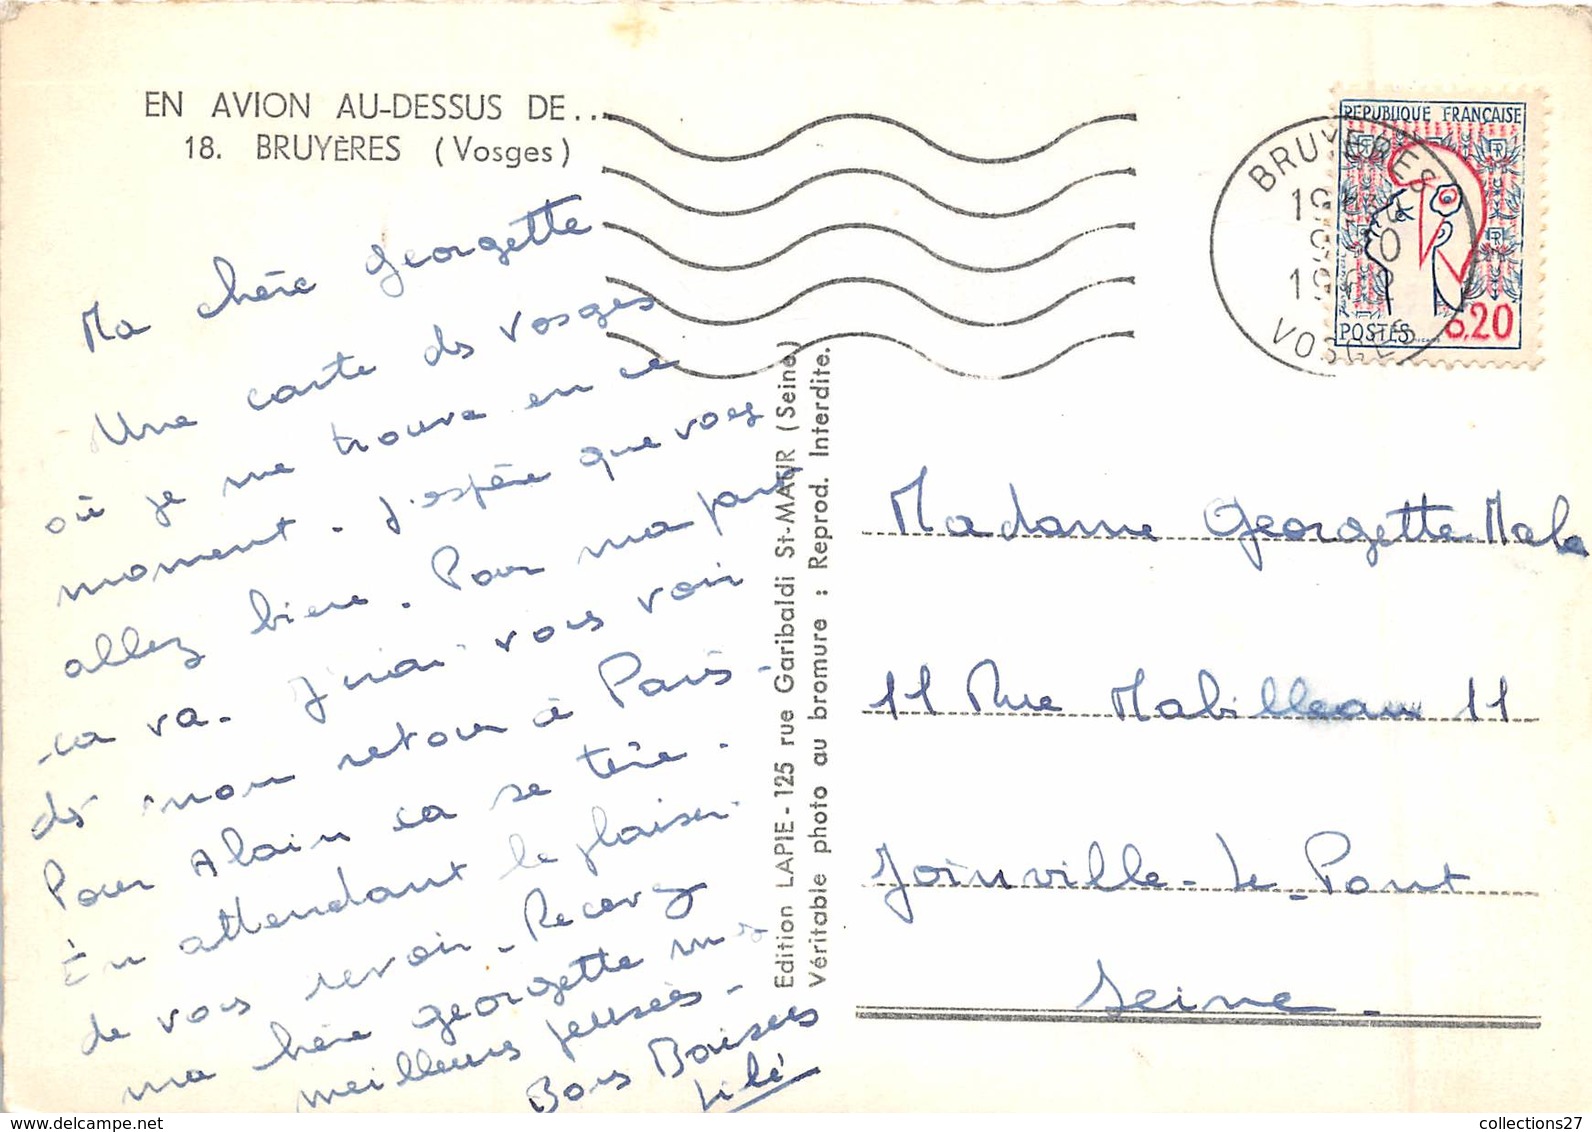 EN AVION AU-DESSUS DE...
18. BRUYÈRES (Vosges)
Ma chère Georgette
Une carte des Vosges
où je me trouve en ce
moment. J'espère que vous
allez bien. Pour ma part
ca va. J'irai vous voir
dès mon retour à Paris.
Pour Alain ca se tire.
En attendant le plaisir
de vous revoir. Recevez
ma chère Georgette mes
meilleures pensées.
Bons Baisers
Lilé
Edition LAPIE - 125 rue Garibaldi St-MAUR (Seine)
Véritable photo au bromure : Reprod. Interdite.
BRUYERES
VOSGES
REPUBLIQUE FRANÇAISE
POSTES
0,20
Madame Georgette Mala
11 Rue Mabilleau 11
Joinville-Le-Pont
Seine
collections27